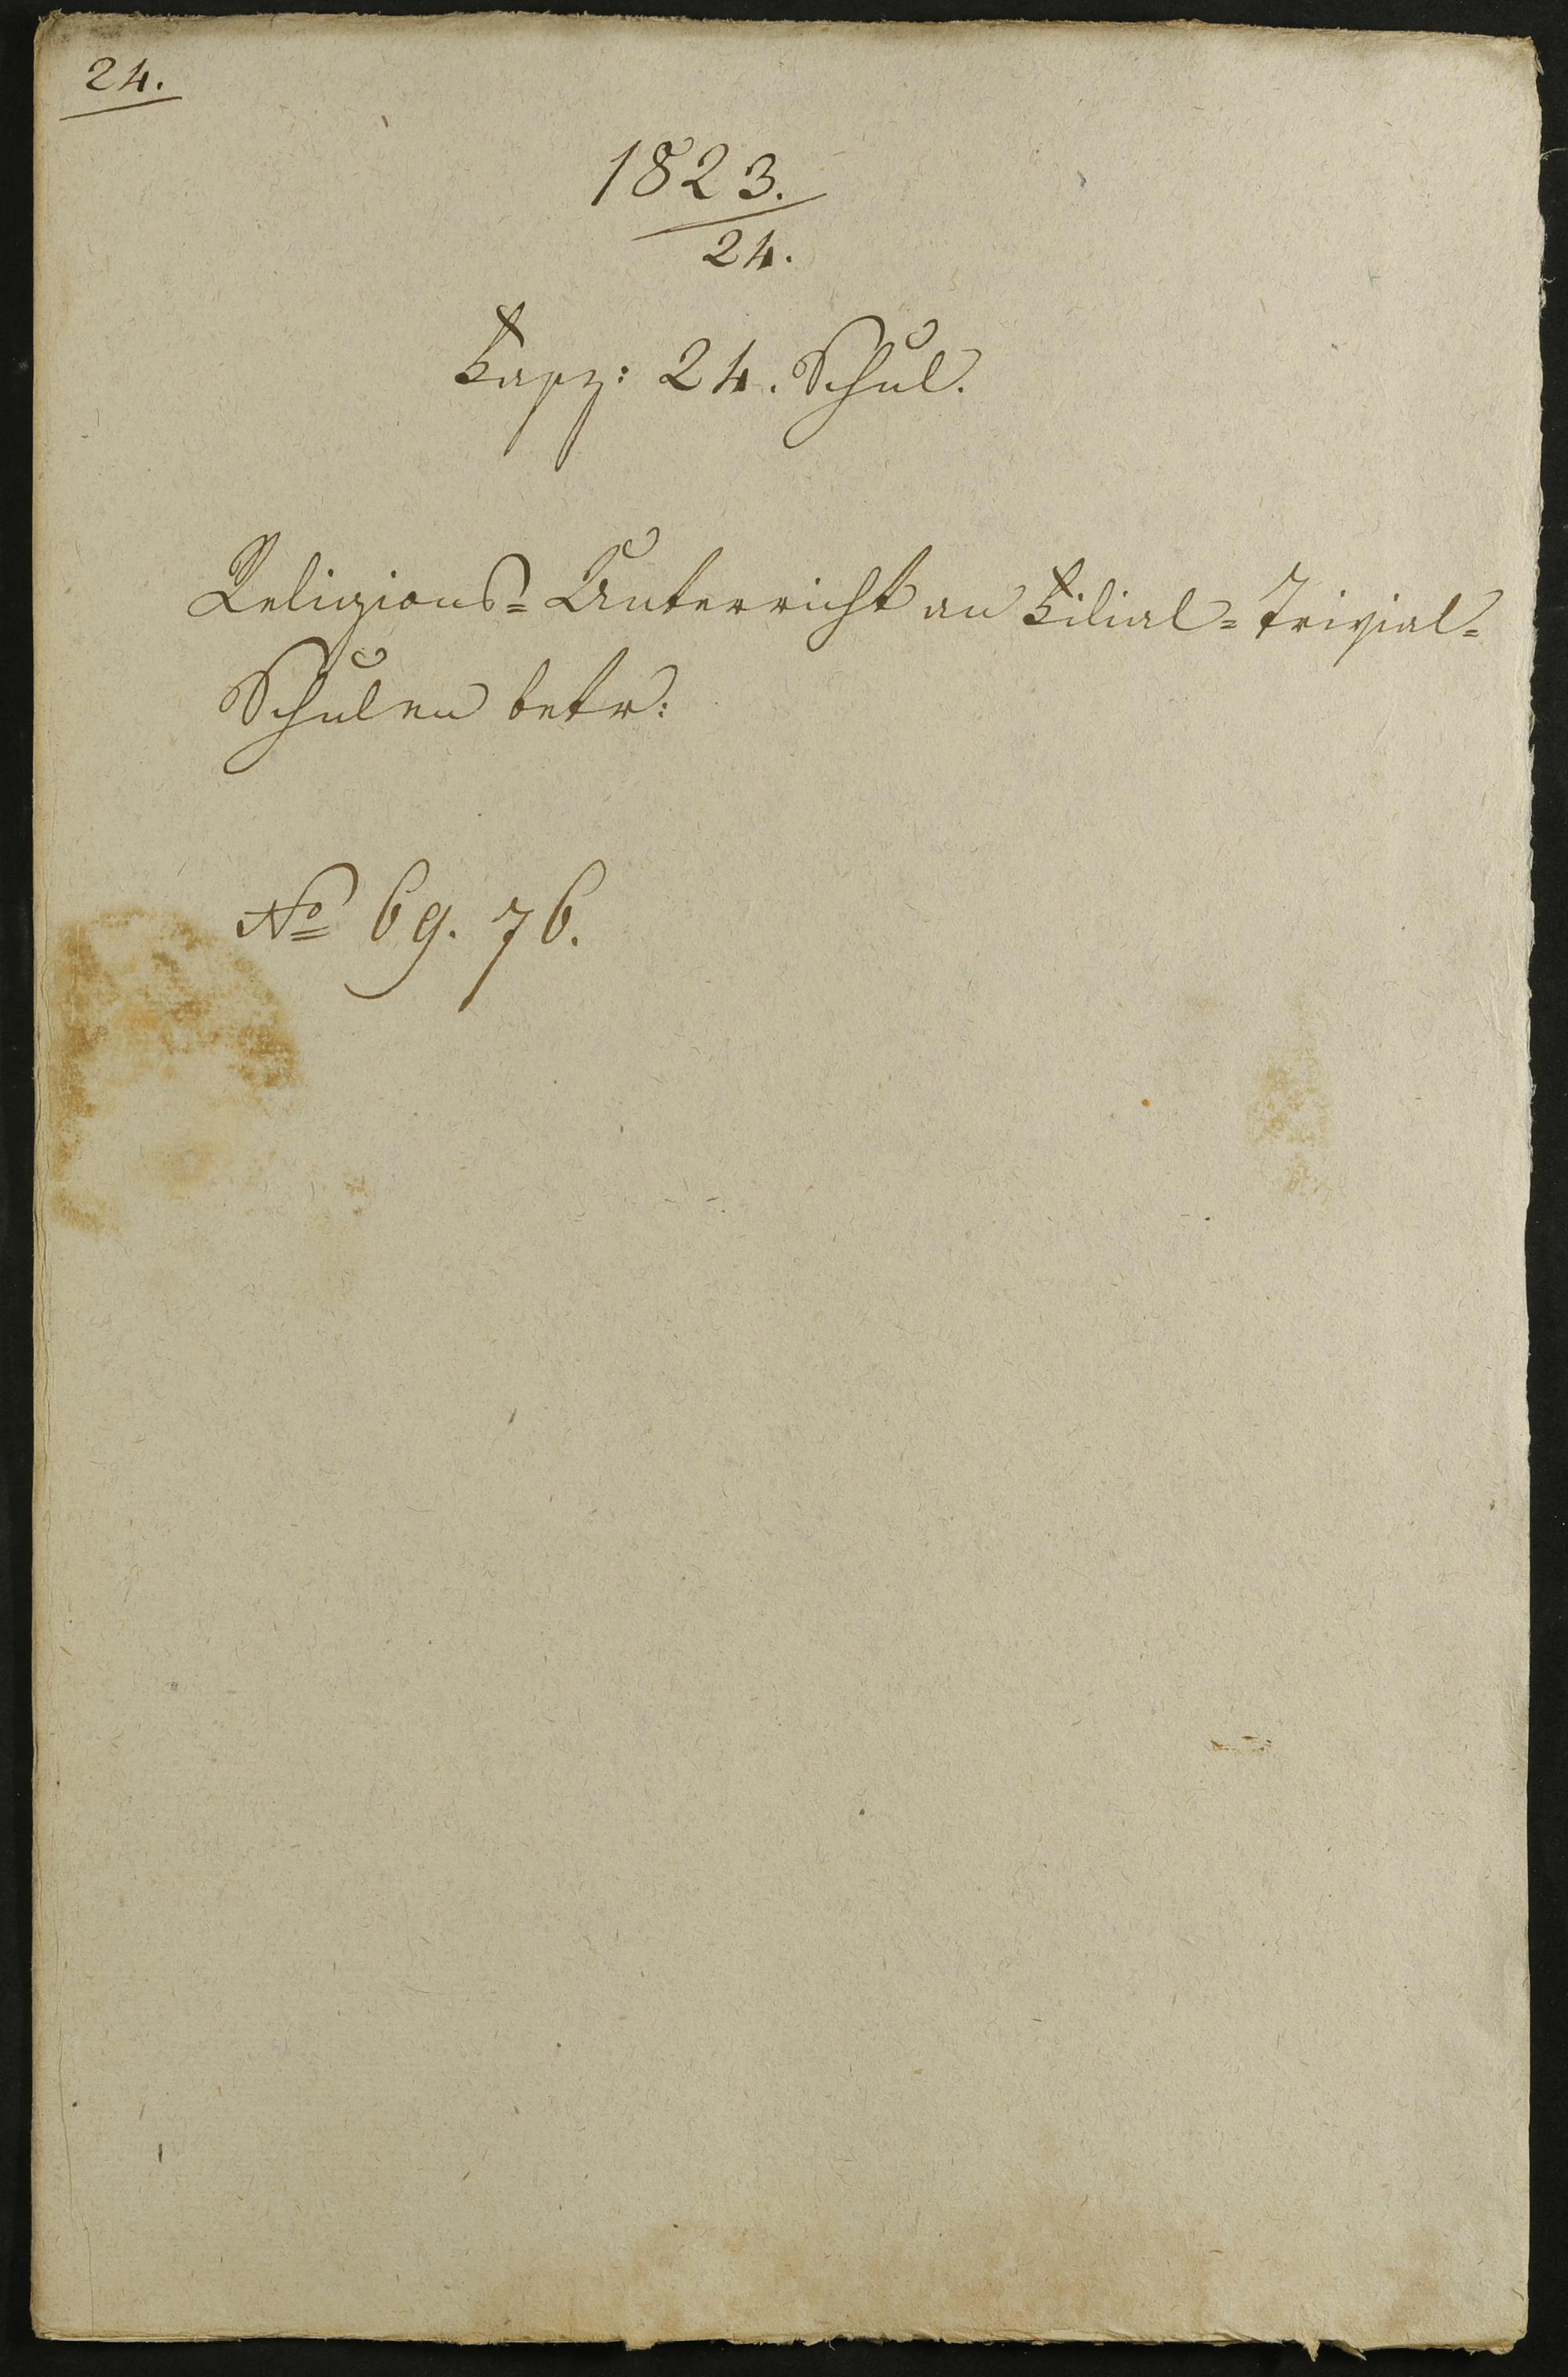 24.
1823.
24.
Fasz: 24. Schul.
Religions= Unterricht an Filial= Trivial=
Schulen betr:
No 69. 76.